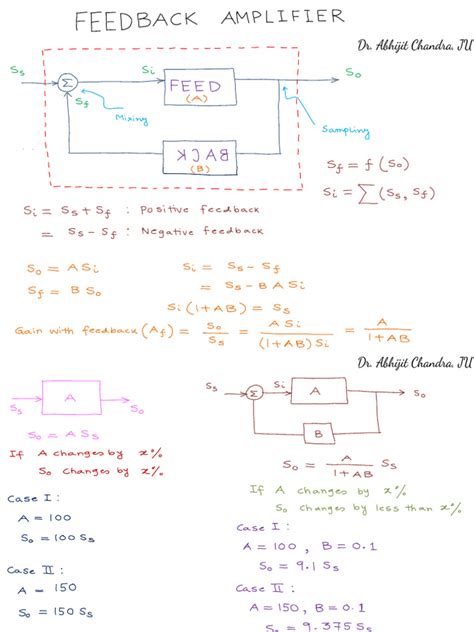 FEEDBACK AMPLIFIER
Dr. Abhijit Chandra, JU
Ss
Si
FEED
(A)
So
Σ
Sf
Mixing
Sampling
BACK
(B)
Sf = f (So)
Si = Σ (Ss, Sf)
Si = Ss + Sf : Positive feedback
= Ss - Sf : Negative feedback
So = A Si
Si = Ss - Sf
Sf = B So
= Ss - B A Si
Si (1 + AB) = Ss
Gain with feedback (Af) = So / Ss = A Si / (1+AB) Si = A / 1+AB
Dr. Abhijit Chandra, JU
Ss
A
So
So = A Ss
If A changes by x%
So changes by x%
Case I :
A = 100
So = 100 Ss
Case II :
A = 150
So = 150 Ss
Ss
Σ
Si
A
So
B
So = A / 1+AB Ss
If A changes by x%
So changes by less than x%
Case I :
A = 100 , B = 0.1
So = 9.1 Ss
Case II :
A = 150, B = 0.1
So = 9.375 Ss